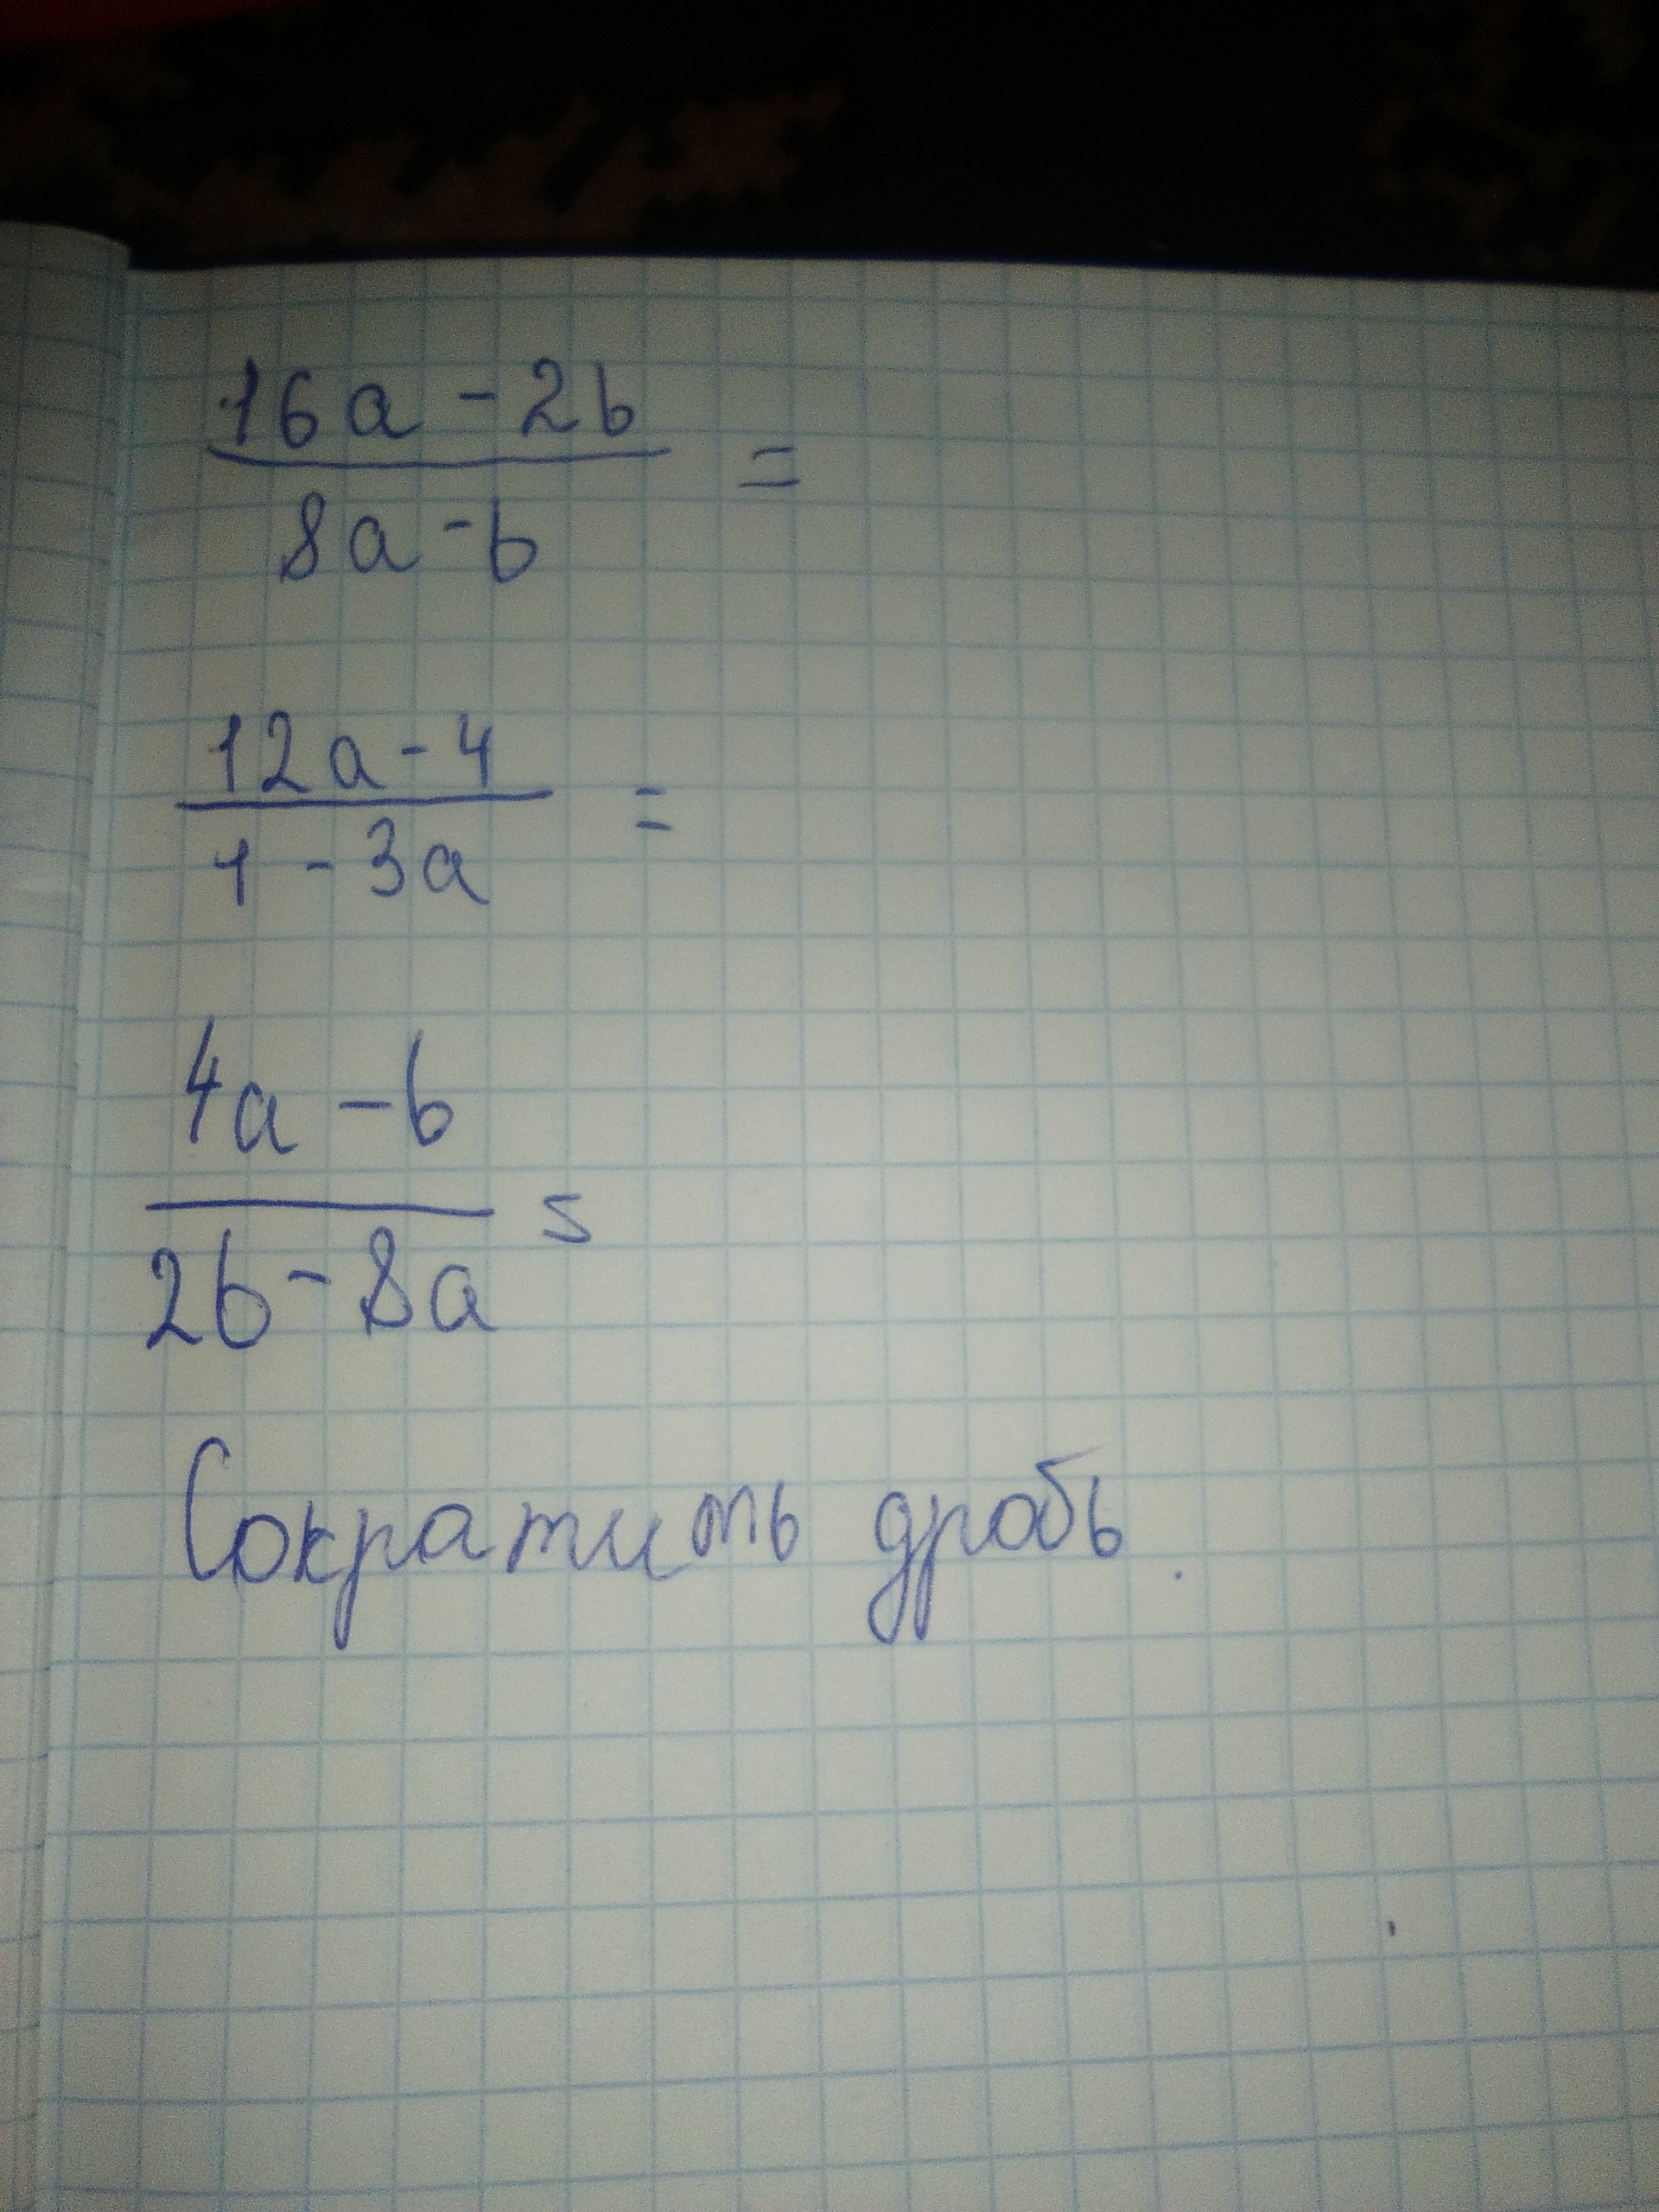 16a - 2b
8a - b =
12a - 4
1 - 3a =
4a - b
2b - 8a =
Сократить дробь.